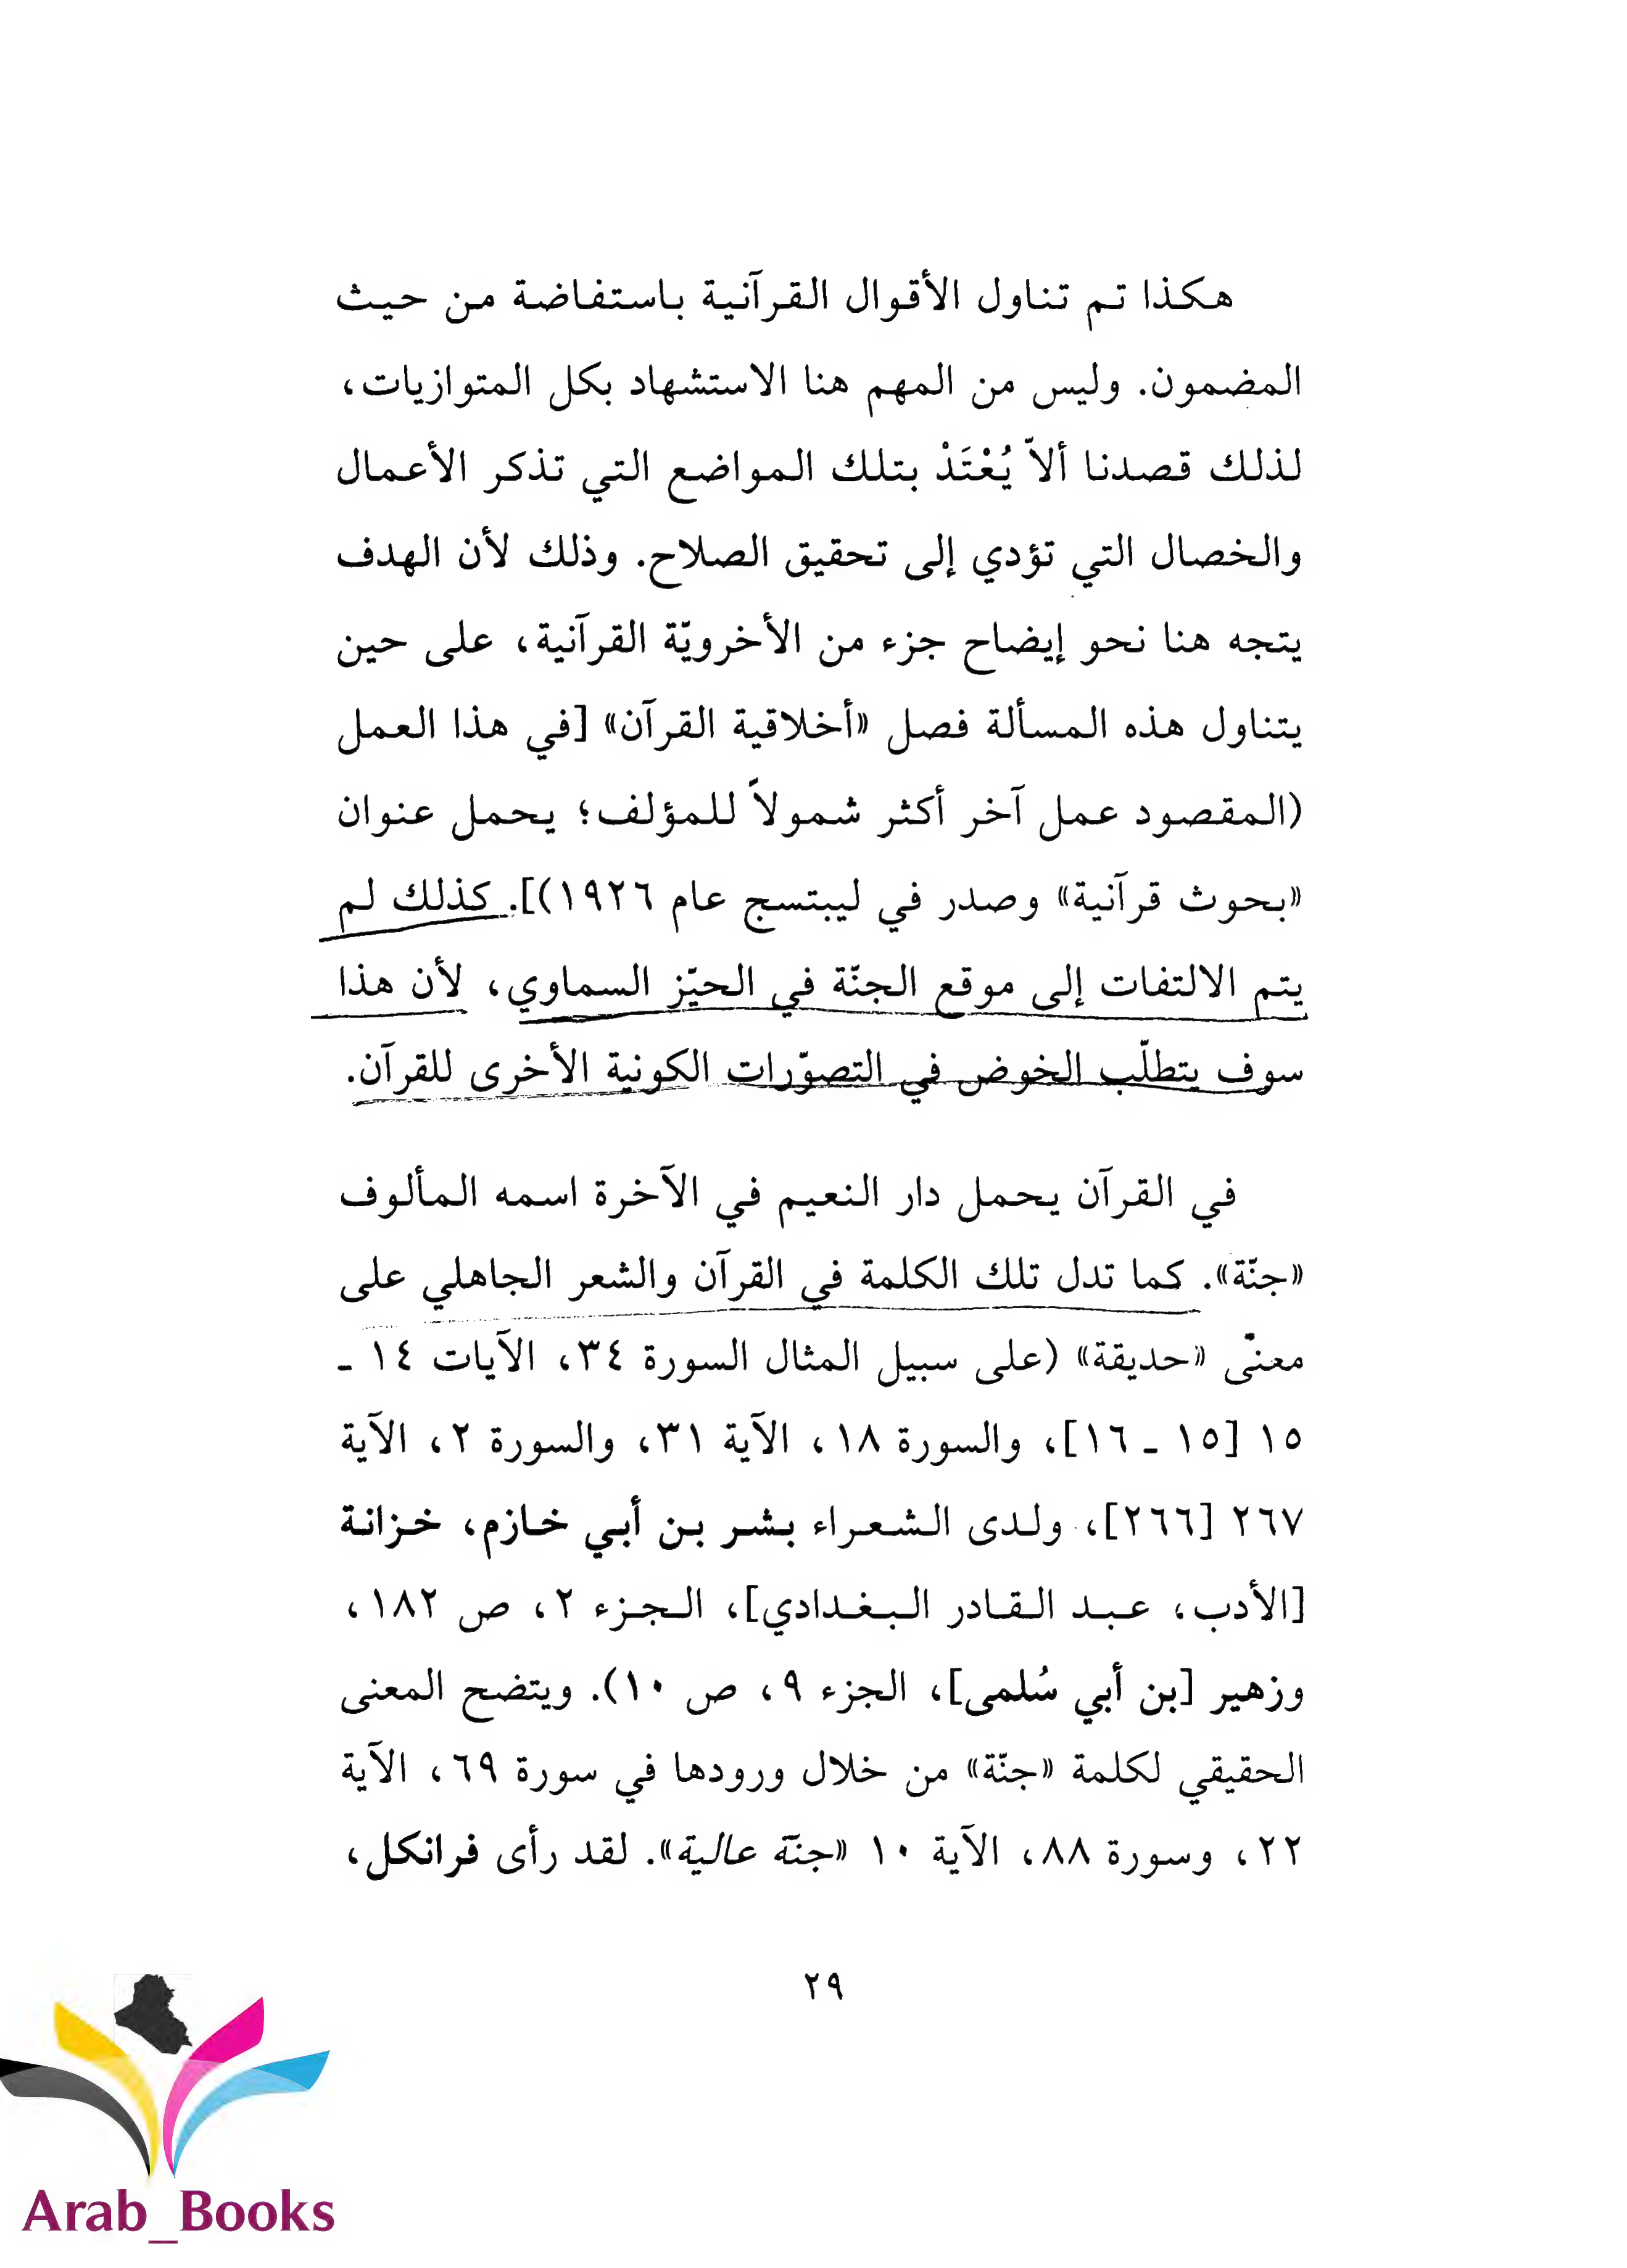 هكذا تم تناول الأقوال القرآنية باستفاضة من حيث
المضمون. وليس من المهم هنا الاستشهاد بكل المتوازيات،
لذلك قصدنا ألاّ يُعْتَدْ بتلك المواضع التي تذكر الأعمال
والخصال التي تؤدي إلى تحقيق الصلاح. وذلك لأن الهدف
يتجه هنا نحو إيضاح جزء من الأخرويّة القرآنية، على حين
يتناول هذه المسألة فصل «أخلاقية القرآن» [في هذا العمل
(المقصود عمل آخر أكثر شمولاً للمؤلف؛ يحمل عنوان
«بحوث قرآنية» وصدر في ليبتسج عام ١٩٢٦)]. كذلك لم
يتم الالتفات إلى موقع الجنّة في الحيّز السماوي، لأن هذا
سوف يتطلّب الخوض في التصوّرات الكونية الأخرى للقرآن.
في القرآن يحمل دار النعيم في الآخرة اسمه المألوف
«جنّة». كما تدل تلك الكلمة في القرآن والشعر الجاهلي على
معنّى «حديقة» (على سبيل المثال السورة ٣٤، الآيات ١٤ ـ
١٥ [١٥ ـ ١٦]، والسورة ١٨، الآية ٣١، والسورة ٢، الآية
٢٦٧ [٢٦٦]، ولدى الشعراء بشر بن أبي خازم، خزانة
[الأدب، عبد القادر البغدادي]، الجزء ٢، ص ١٨٢،
وزهير [بن أبي سُلمى]، الجزء ٩، ص ١٠). ويتضح المعنى
الحقيقي لكلمة «جنّة» من خلال ورودها في سورة ٦٩، الآية
٢٢، وسورة ٨٨، الآية ١٠ «جنّة عالية». لقد رأى فرانكل،
٢٩
Arab_Books